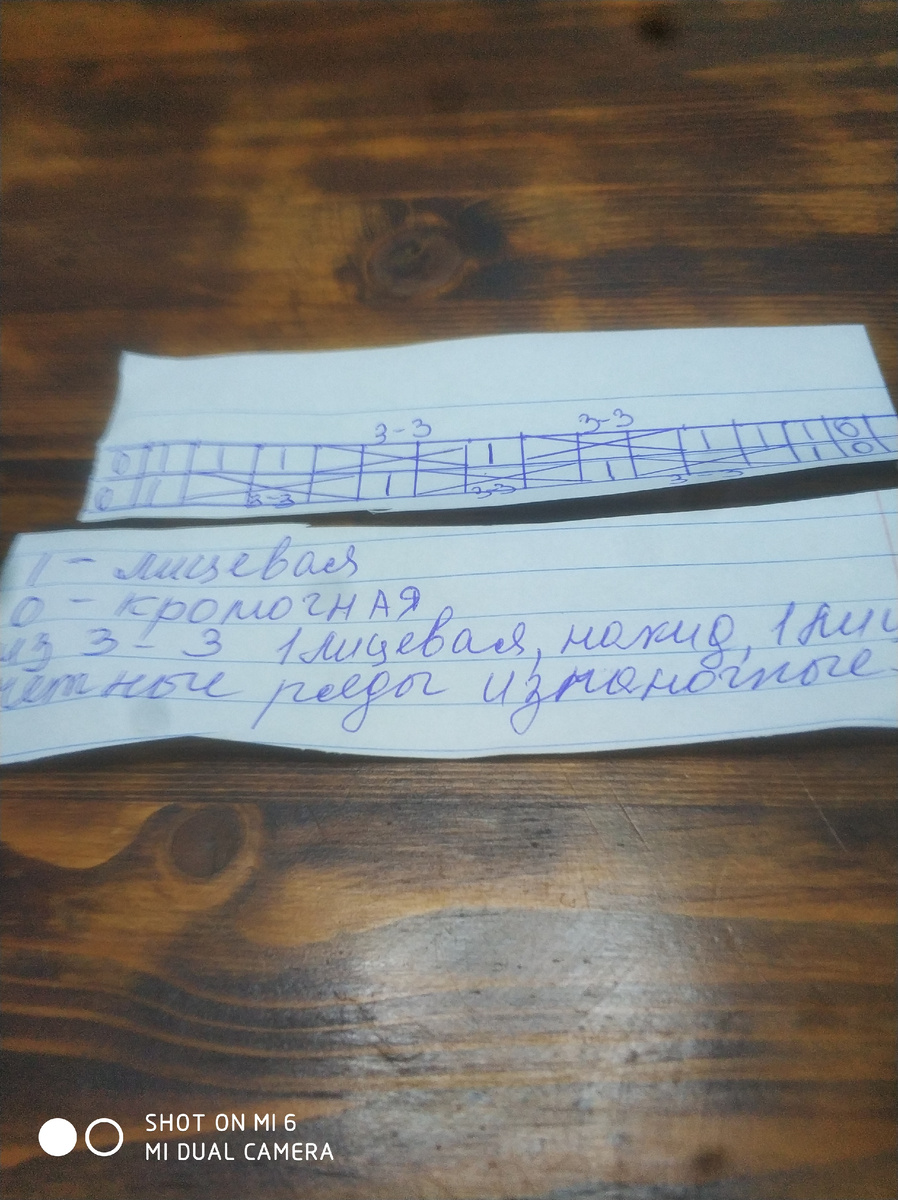 3-3 3-3
0 1 1 1 1 1 1 1 1 0
0 1 3-3 1 3-3 1 3-3 1 0
1 - лицевая
0 - кромочная
из 3-3 1 лицевая, накид, 1 лиц
четные ряды изнаночные.
SHOT ON MI 6
MI DUAL CAMERA